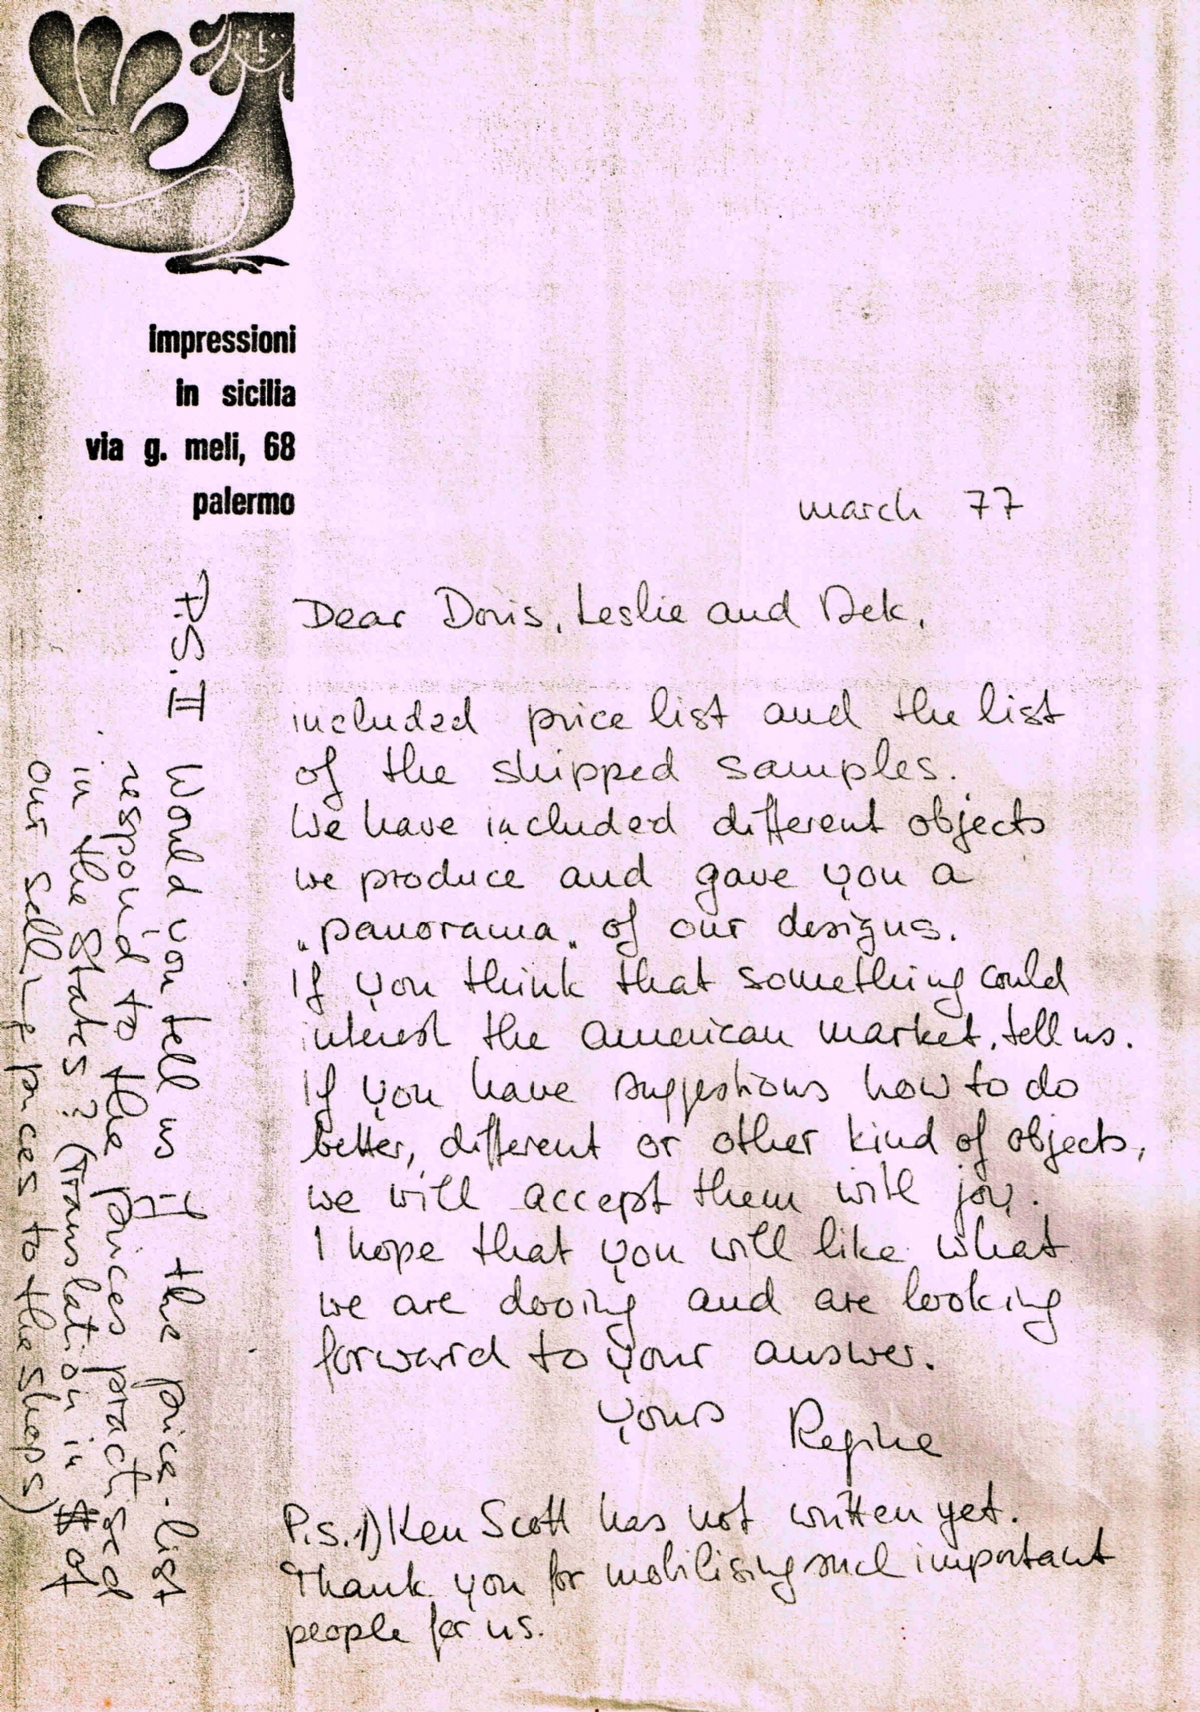 impressioni
in sicilia
via g. meli, 68
palermo
march 77
Dear Doris, Leslie and
included price list and the list
of the shipped samples.
We have included different objects
we produce and gave you a
„panorama„ of our designs.
If you think that something could
interest the american market, tell us.
If you have suggestions how to do
better, different or other kind of objects,
we will accept them with joy.
I hope that you will like what
we are dooing and are looking
forward to your answer.
Yours Regine
P.S.1) Ken Scott has not written yet.
Thank you for mobilising such important
people for us.
P.S. II Would you tell us if the price-list
respond to the prices practised
in the States? (translation in $ of
our selling prices to the shops)